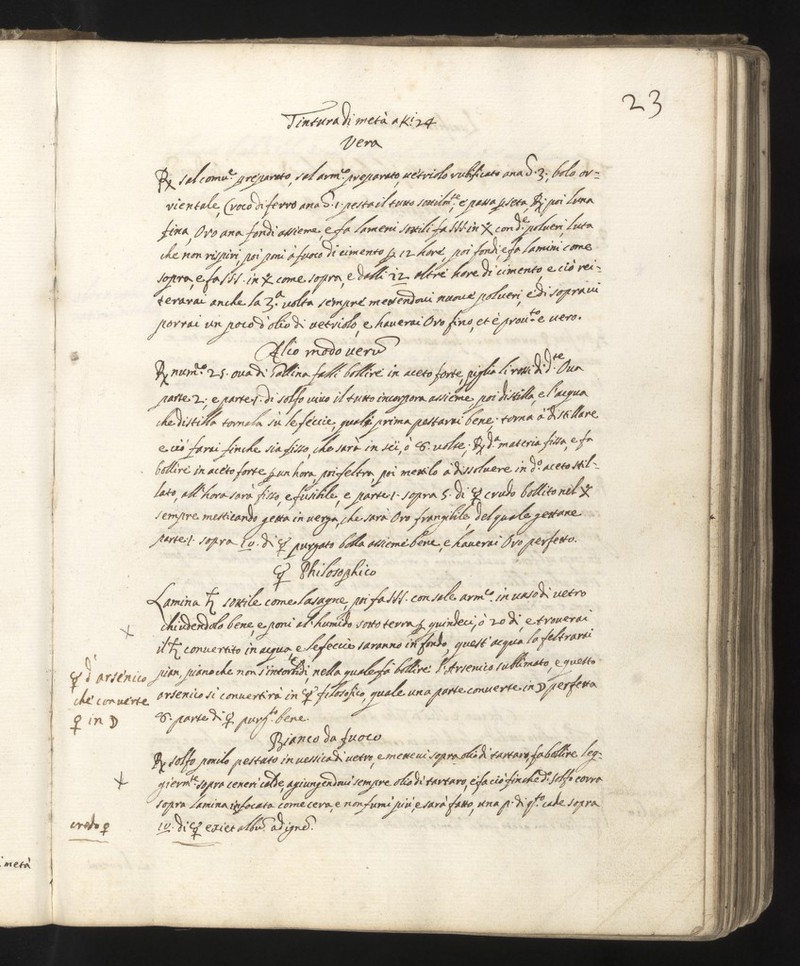 23
Tintura di metà a K.i 24
Vera
℞ sal comu.e preparato, sal arm.o preparato, vetriolo rubificato ana ʒ. 3., bolo or=
rientale, Croco di ferro ana ʒ. 1. pesta il tutto sottilm.te, e passa p seta ℞ poi luna
fina, Oro ana fondi assieme, e fa lameni sottili fa SSS in 🝧 con d.e polveri, luta
che non rispiri, poi poni à fuoco di cimento p 12 hore, poi fondi, e fa lamini come
sopra, e fa SSS. in 🝧 come sopra, e dalli 12 altre hore di cimento, e ciò rei=
terarai anche la 3.a volta sempre mettendovi nuove polveri, e di sopra vi
porrai un poco d'olio di vetriolo, e haverai Oro fino, et è prov.to e vero.
Alio modo veru
℞ num.o 25. ova di Gallina falli bollire in aceto forte, piglia li rossi di d.te Ova
parte 2., e parte 1. di solfo vivo il tutto incorpora assieme, poi distilla, e l'acqua
che distilla tornala sù le feccie, quali prima pestarai bene, torna à distillare
e ciò farai finche sia fisso, che sarà in sei, ò 8. volte, ℞ d.a materia fissa, e fa
bollire in aceto forte p un hora, poi feltra, poi mettilo à dissolvere in d.o aceto stil=
lato, all'hora sarà fisso, e fusibile, e parte 1. sopra 5. di ☿ crudo bollito nel 🝧
sempre mesticando getta in verga, che sarà Oro frangibile, del quale gettane
parte 1. sopra 10. di ☿ purgato bolla assieme bene, e haverai Oro perfetto.
☿ Philosophico
Lamina ♄ sottile come lasagne, poi fa SSS. con sale arm.o in vaso di vetro
chiudendolo bene, e poni al humido sotto terra p quindeci, ò 20 di e troverai
il ♄ convertito in acqua, e le feccie saranno in fondo, quest'acqua la feltrarai
pian, piano che non s'intorbidi, nella quale fà bollire l'Arsenico sullimato, e questo
arsenico si convertirà in ☿ filosofico, quale una parte converte in ☽ perfetta
8. parte di ♀ purg.o bene.
☿ d'arsenico
che converte
♀ in ☽
Bianco da fuoco
℞ solfo ponilo pestato in vessica di vetro, e mettevi sopra olio di tartaro, fa bollire leg=
gierm.te sopra ceneri calde, agiungendovi sempre olio di tartaro, e fa ciò finche d.o solfo corra
sopra lamina infocata come cera, e non fumi più, e sarà fatto, una p. di q.o cade sopra
10. di ☿ exiet albu. ad igne.
credo ♀
metà